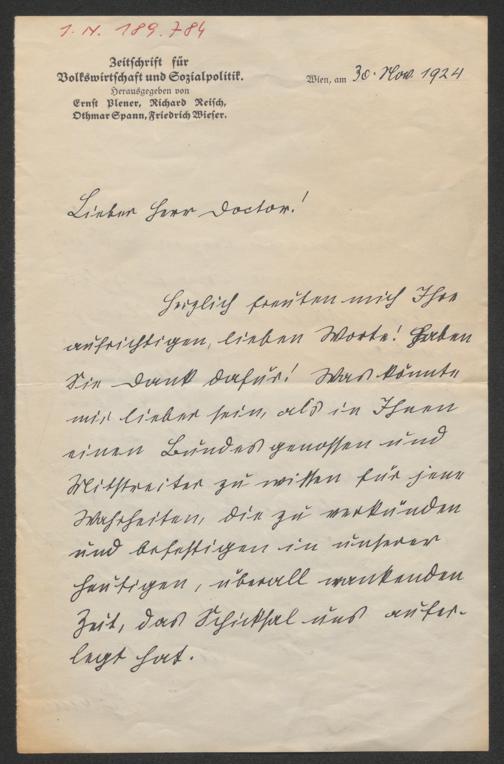 I. N. 189.784
Zeitschrift für
Volkswirtschaft und Sozialpolitik.
Herausgegeben von
Ernst Plener, Richard Reisch,
Othmar Spann, Friedrich Wieser.
Wien, am 30. Nov. 1924
Lieber Herr Doctor!
Herzlich freuten mich Ihre
aufrichtigen, lieben Worte! Haben
Sie Dank dafür! Was könnte
mir lieber sein, als in Ihnen
einen Bundesgenossen und
Mitstreiter zu wissen für jene
Wahrheiten, die zu verkünden
und befestigen in unserer
heutigen, überall wankenden
Zeit, das Schicksal uns aufer-
legt hat.